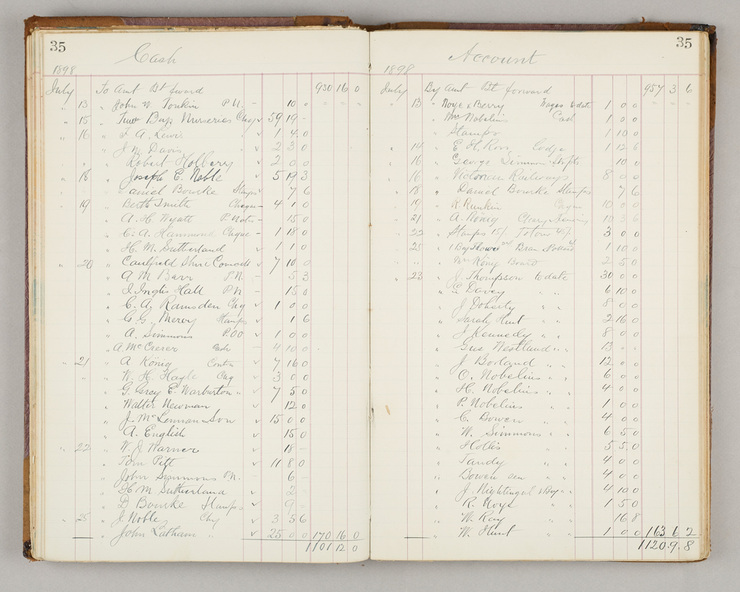 35
Cash
1898
July To Amt Bt forward 930 16 0
" 13 " John N. Tonkin P.N. 10 0
" 15 " Two Bays Nurseries Chq 59 19 -
" 16 " L A Lewis 1 4 0
" J M Davis 2 3 0
" Robert Hallbery 2 0 0
" 18 " Joseph E. Noble 5 19 3
" Daniel Bourke Stamps 7 6
" 19 " Bertt Smith Cheque 4 1 0
" A. H. Wyatt P. Note 15 0
" C. A. Hammond Cheque 1 18 0
" H. M. Sutherland 1 1 0
" 20 " Caulfield Shire Council 7 10 0
" A M Barr P.N. 5 3
" J Inglis Hall P.N. 15 0
" C. A. Ramsden Chq 1 0 0
" C. G. Mercy Stamps 1 6
" A. Simmons P.O.O 1 0 0
" A McCreser 4 10 0
" 21 " A König 7 16 0
" W. H. Hayle Chq 3 0 0
" G. Gercy E. Warburton 7 5 0
" Walter Newman 12 0
" J. McLennan & Son 15 0 0
" A. English 15 0
" 22 " W. J. Warner 18 -
" Tom Pitt 11 8 0
" John Simmons P.N. 6 -
" H. M Sutherland 2
" D Bourke Stamps 9
" 25 " J. Noble Chq 3 5 6
" John Latham " 25 0 0 170 16 0
1101 12 0
35
Account
1898
July By Amt Bt forward 957 3 6
" 13 " Noye & Berry Wages to date 1 0 0
" Wm Nobelius Cash 1 0 0
" Stamps 1 10 0
" 14 " E H Rorr 1 12 6
" 16 " George Simmons 10 0
" 16 " Victorian Railways 8 0 0
" 18 " Daniel Bourke Stamps 7 6
" 19 " R Rankin 10 0 0
" 21 " A. König 10 3 6
" 22 " Stamps 15/ Totem 45/ 3 0 0
" 25 " 1 10 0
" Wm King Board 2 5 0
" 23 " J. Thompson to date 30 0 0
" Davey " " 6 10 0
" J. Doherty " " 8 0 0
" Sarah Hunt " " 2 16 0
" J. Kennedy " " 8 0 0
" Gus Westland " " 13 0 0
" J. Borland " " 12 0 0
" C. Nobelius " " 6 0 0
" H. Nobelius " " 4 0 0
" P. Nobelius " 1 0 0
" C. Bowen " " 4 0 0
" W. Simmons " " 6 5 0
" Hollis " 5 5 0
" Tandy " 4 0 0
" Bowen sen " " 4 0 0
" J. Nightingal & Boy " 4 10 0
" R. Hoys " " 1 5 0
" W. Roy " " 16 8
" W. Hunt " " 1 0 0 163 6 2
1120 9 8